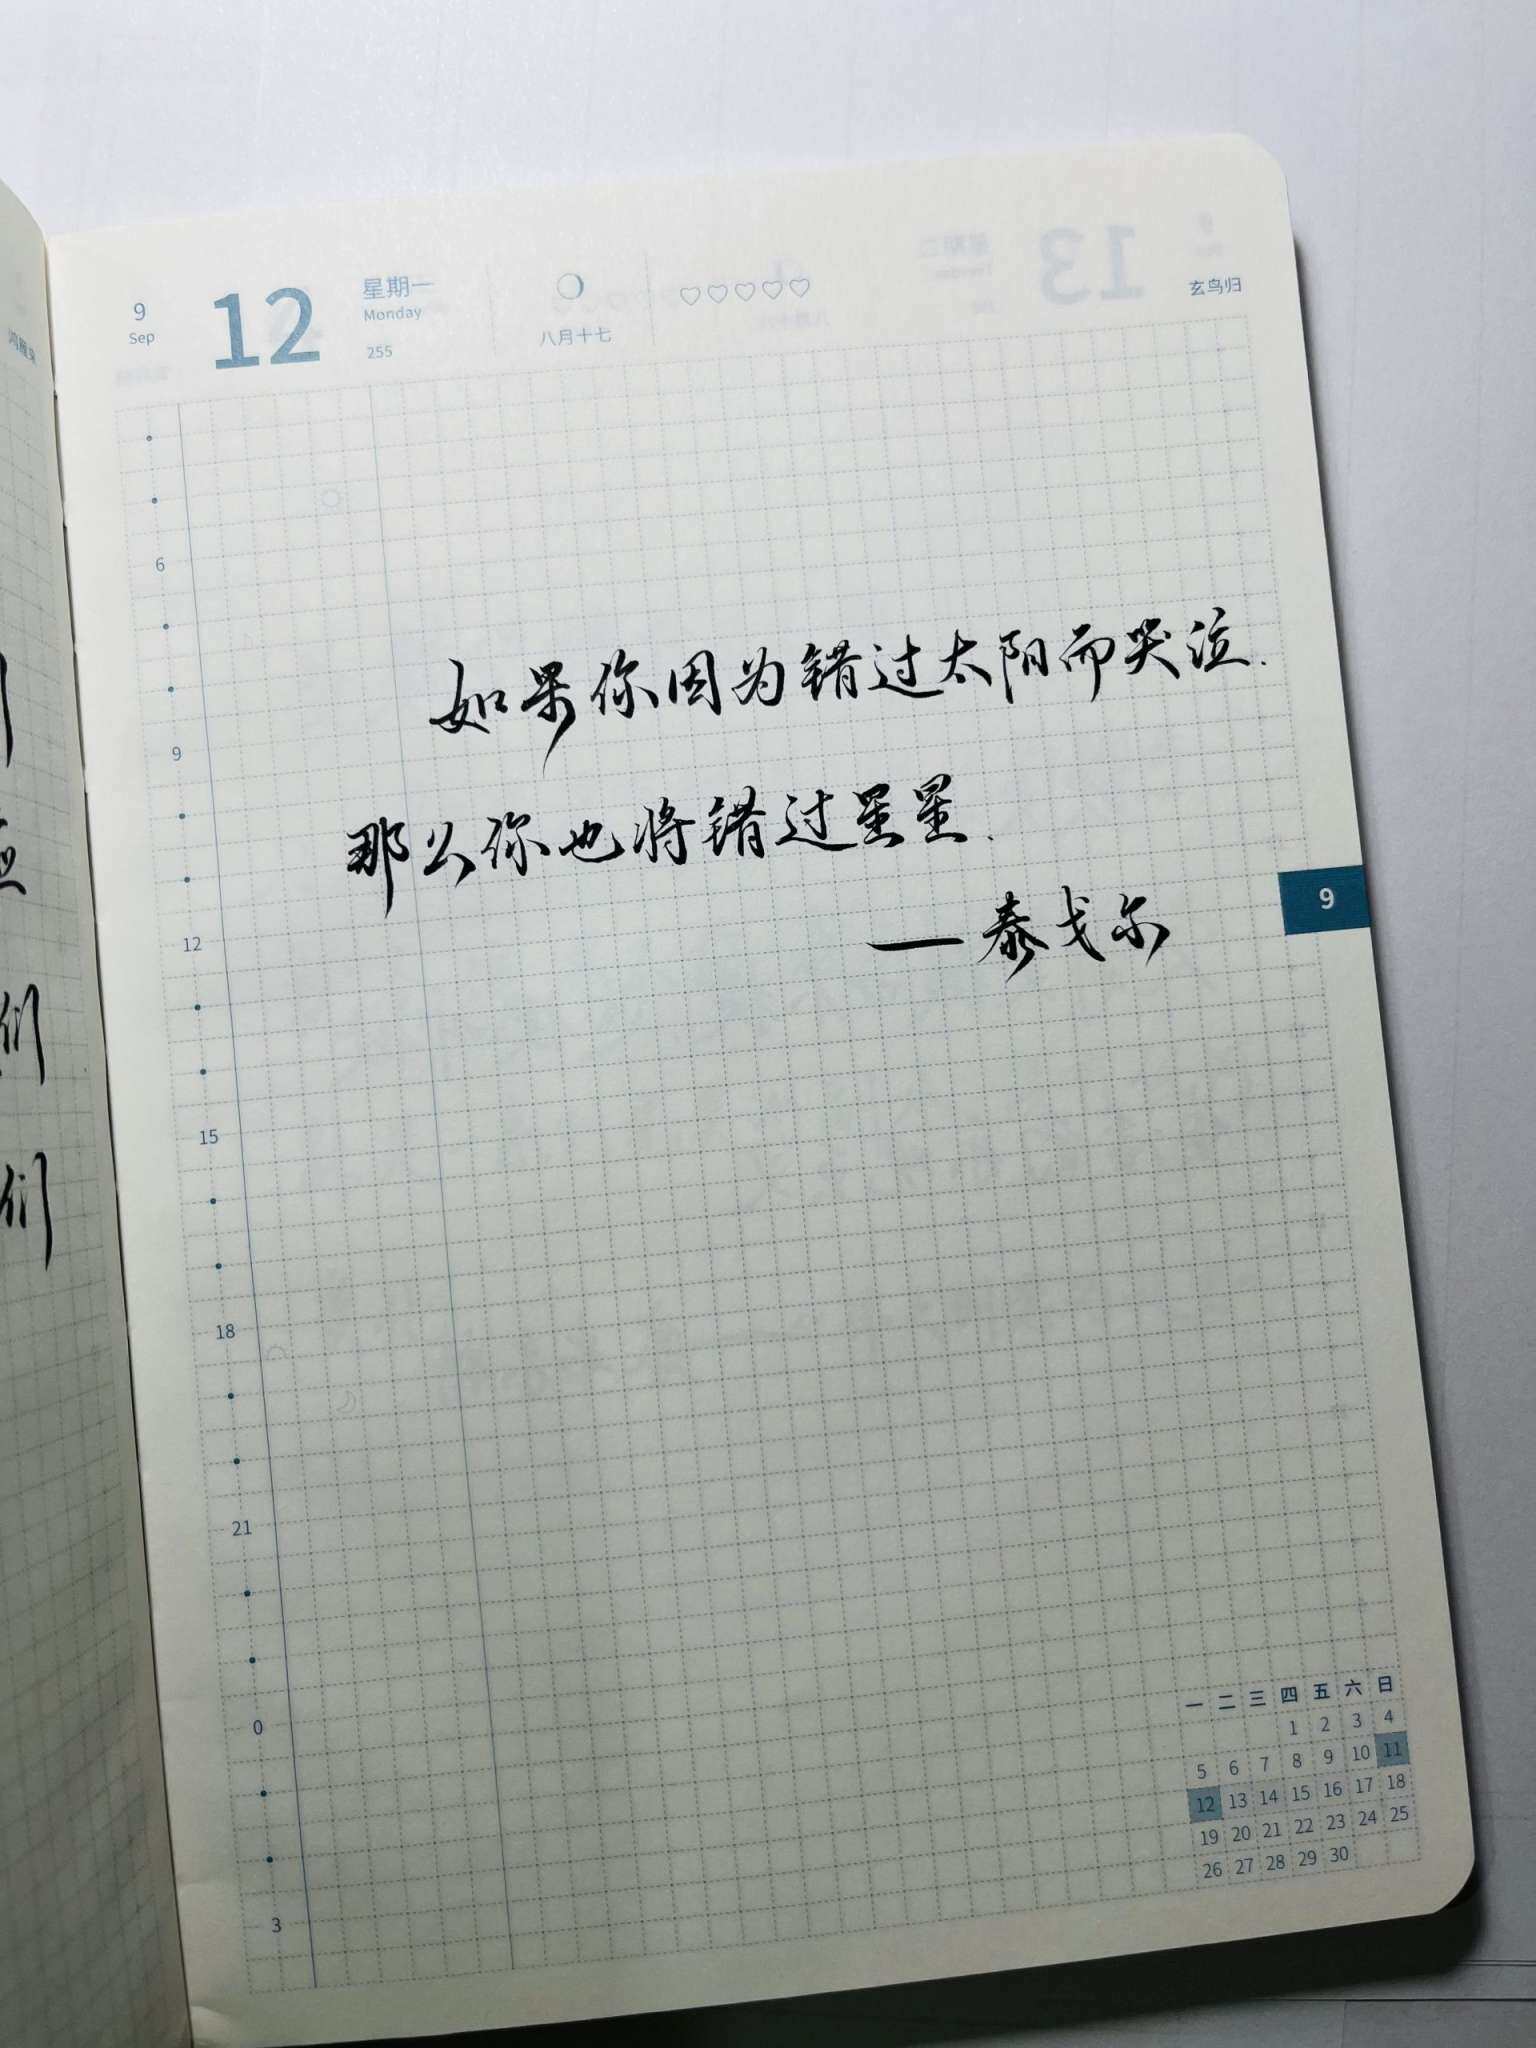 9
Sep
12
星期一
Monday
255
八月十七
玄鸟归
如果你因为错过太阳而哭泣.
那么你也将错过星星.
—泰戈尔
6
9
12
15
18
21
0
3
9
一 二 三 四 五 六 日
1 2 3 4
5 6 7 8 9 10 11
12 13 14 15 16 17 18
19 20 21 22 23 24 25
26 27 28 29 30
们
们
13